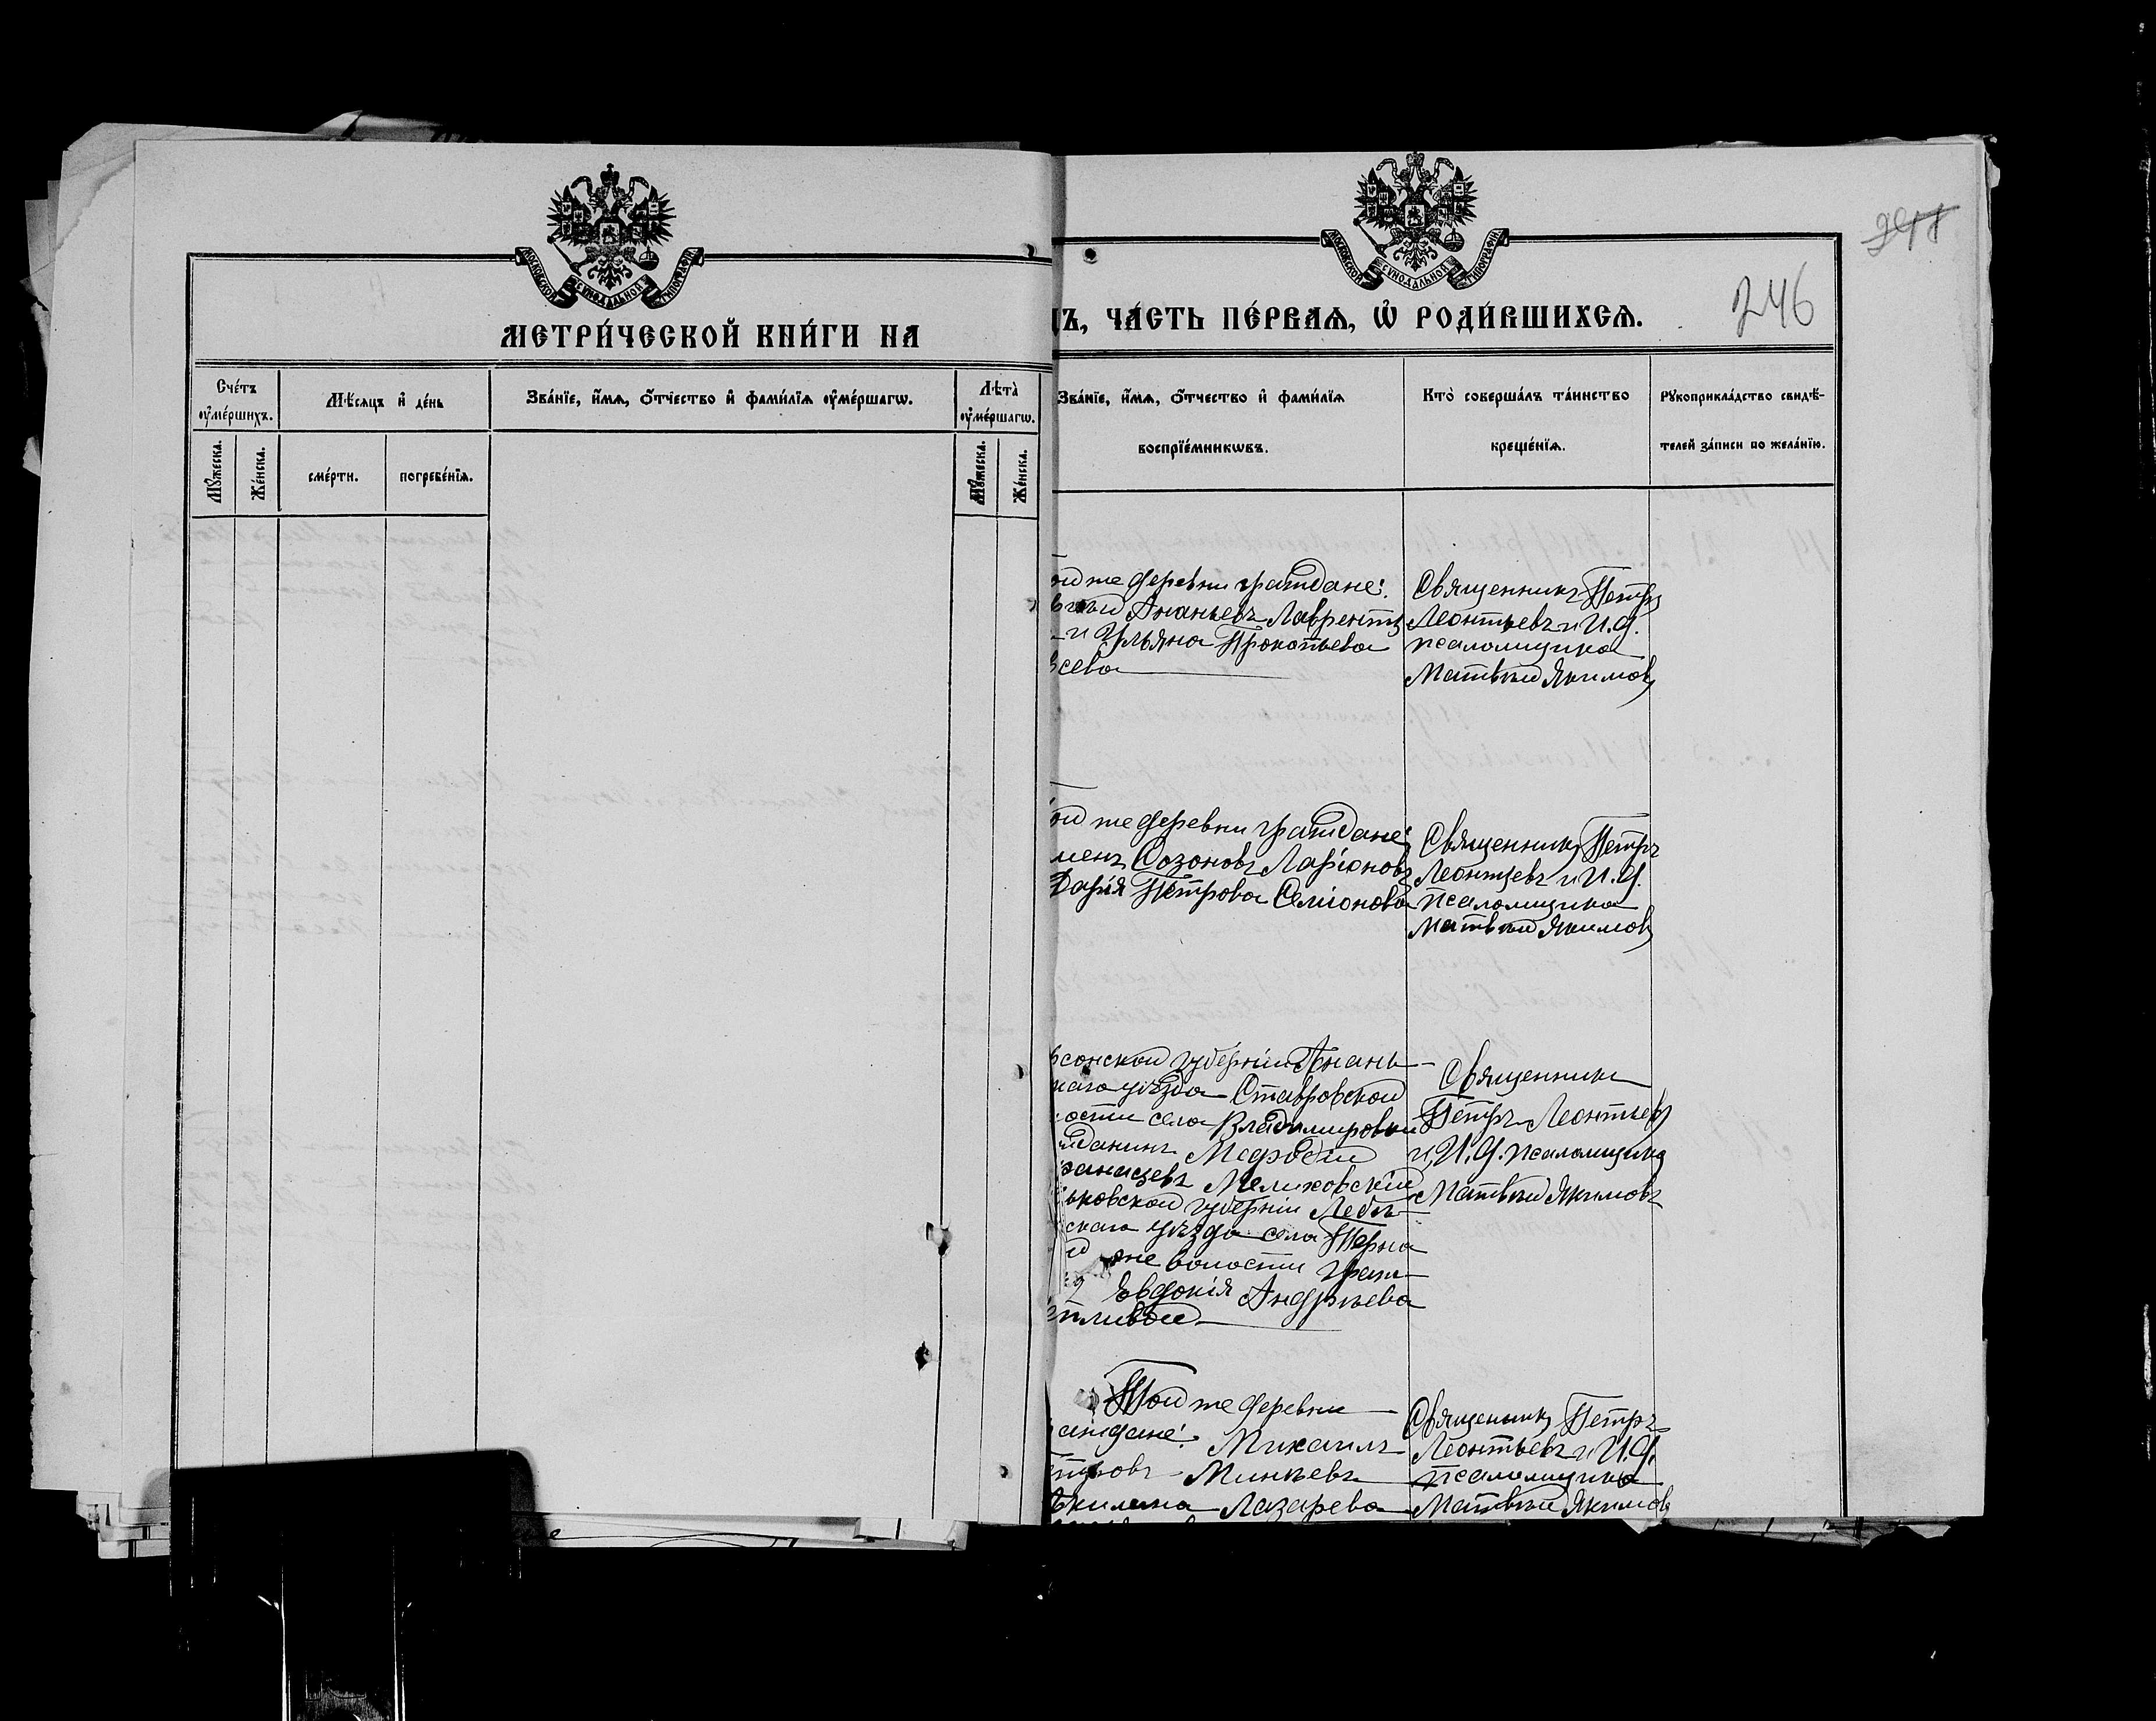 МОСКОВСКОЙ СѴНОДАЛЬНОЙ ТИПОГРАФІИ
МЕТРИ́ЧЕСКОЙ КНИ́ГИ НА
Сче́тъ ᲂу҆ме́ршихъ.
Мꙋ́жеска.
Же́нска.
Мѣ́сяцъ и҆ де́нь
сме́рти.
погребе́нїѧ.
Зва́нїе, и҆́мѧ, ѻ҆́тчество и҆ фами́лїѧ ᲂу҆ме́ршагѡ.
Лѣта̀ ᲂу҆ме́ршагѡ.
Мꙋ́жеска.
Же́нска.
МОСКОВСКОЙ СѴНОДАЛЬНОЙ ТИПОГРАФІИ
246
Ъ, ЧА́СТЬ ПЕ́РВАѦ, Ѡ҆ РОДИ́ВШИХСѦ.
Зва́нїе, и҆́мѧ, ѻ҆́тчество и҆ фами́лїѧ
воспрїе́мникѡвъ.
Кто̀ соверша́лъ та́инство
креще́нїѧ.
Рꙋкоприкла́дство свидѣ́-
телей за́писи по жела́нїю.
ой же деревни граждане:
Ананьевъ Лаврентъ
и Ульяна Прокопьева
сева
Священникъ Петръ
Леонтьевъ и И.д.
псаломщика
Матвѣй Якимовъ
ой же деревни граждане:
менъ Созоновъ Ларіоновъ
Дарія Петрова Семіонова
Священникъ Петръ
Леонтьевъ и И.д.
псаломщика
Матвѣй Якимовъ
рсонской губерніи Анань-
скаго уѣзда Ставровской
ости села Владимировки
жданинъ Мефодій
фанасьевъ Мелиховскій
ьковской губерніи Лебе-
скаго уѣзда села Терна
й же волости граж-
Евдокія Андреева
пливой
Священникъ
Петръ Леонтьевъ
и И.д. псаломщика
Матвѣй Якимовъ
Той же деревни
аждане: Михаилъ
етровъ Минѣевъ
Акилина Лазарева
Священникъ Петръ
Леонтьевъ и И.д.
псаломщика
Матвѣй Якимовъ